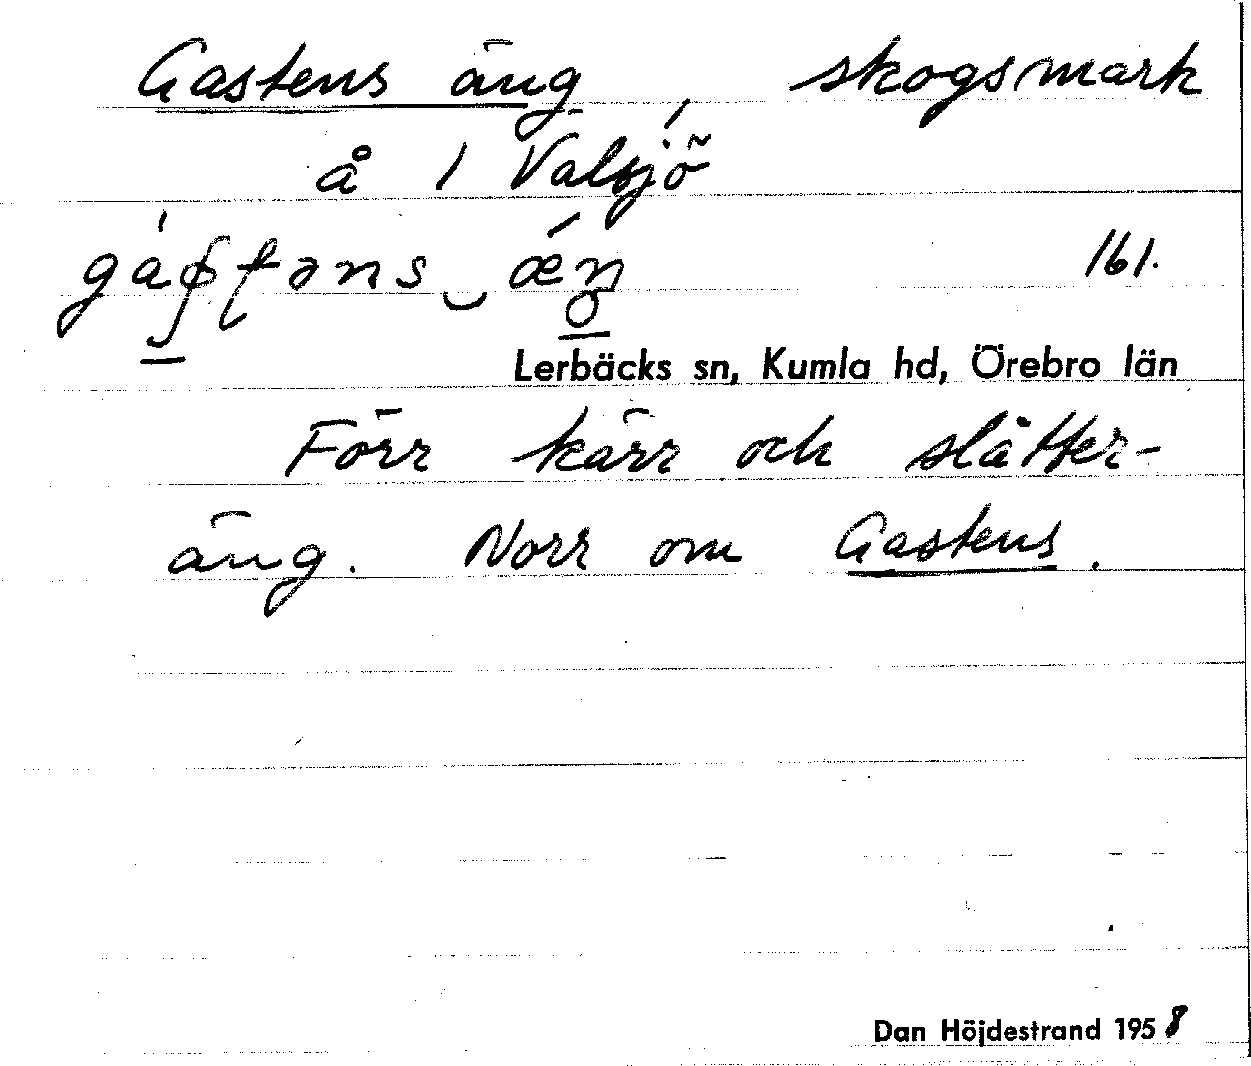 Gastens äng, skogsmark
å 1 Valsjö
161.
Lerbäcks sn, Kumla hd, Örebro län
Förr kärr och slåtter-
äng. Norr om Gastens.
Dan Höjdestrand 1958